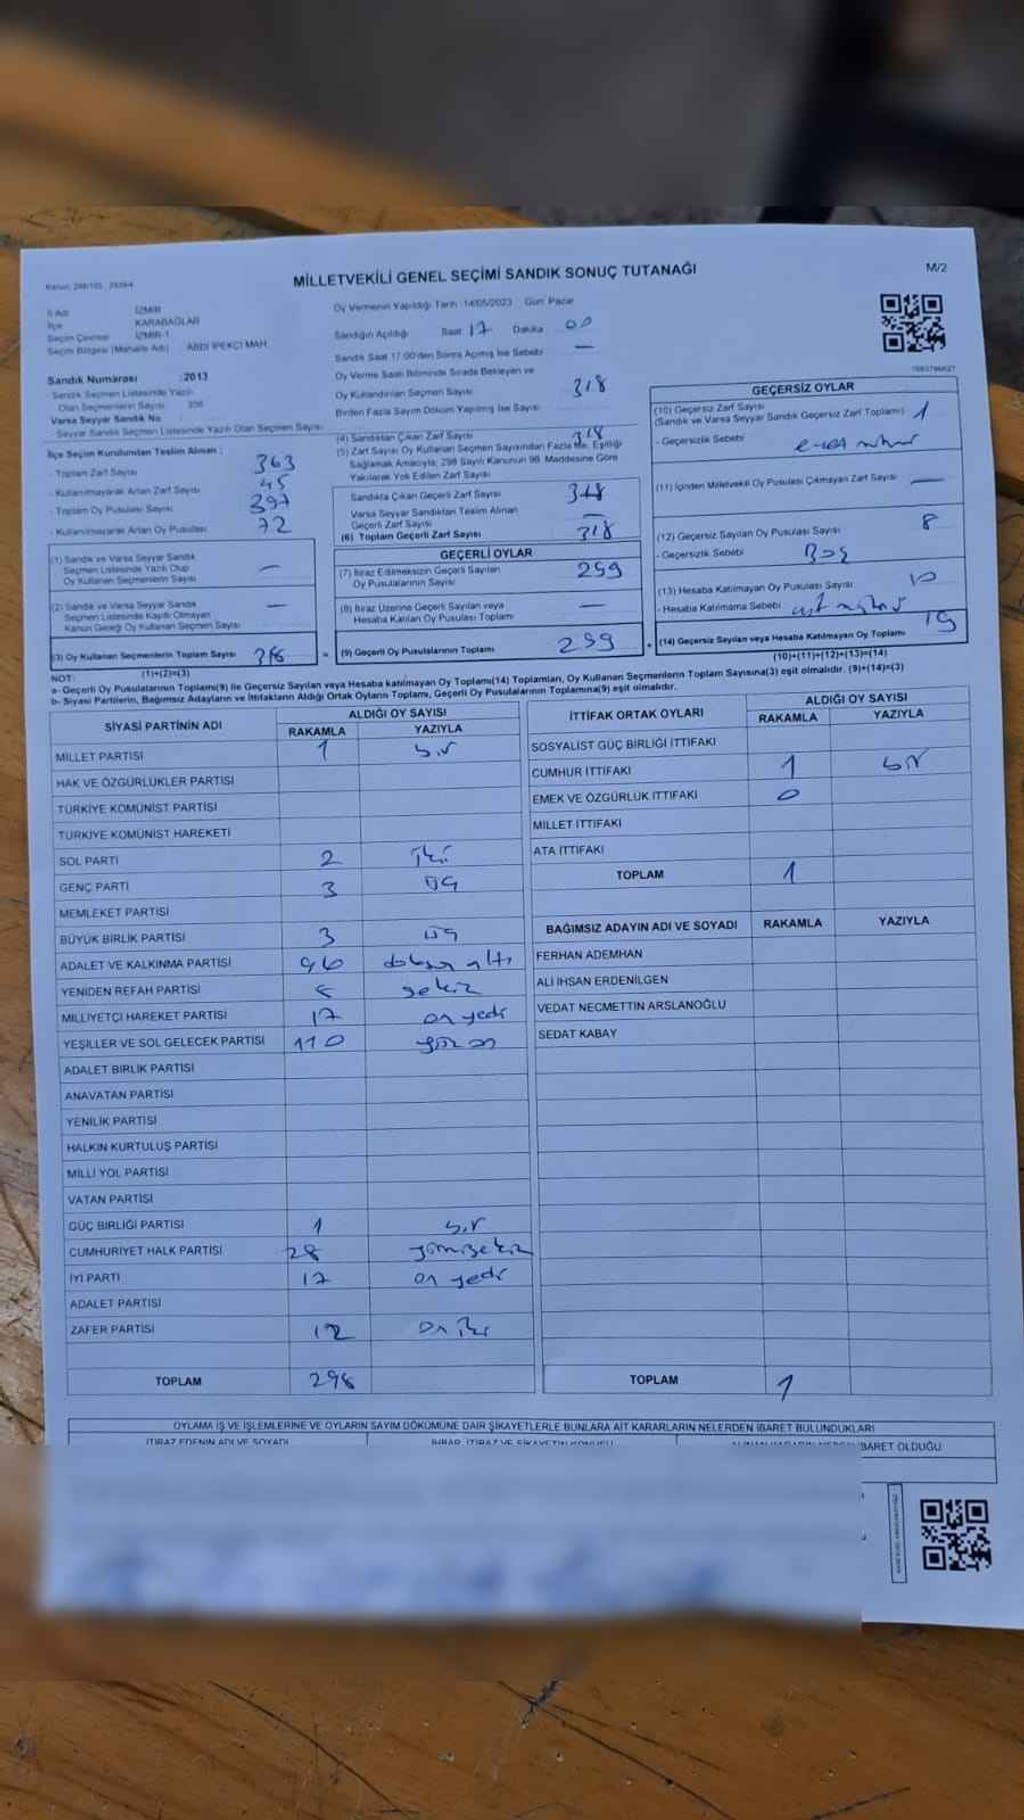 MİLLETVEKİLİ GENEL SEÇİMİ SANDIK SONUÇ TUTANAĞI
M/2
İl Adı İZMİR
İlçe KARABAĞLAR
Seçim Çevresi İZMİR-1
Seçim Bölgesi (Mahalle Adı) ABDİ İPEKÇİ MAH.
Sandık Numarası :2013
- Sandık Seçmen Listesinde Yazılı
Olan Seçmenlerin Sayısı
Varsa Seyyar Sandık No
Seyyar Sandık Seçmen Listesinde Yazılı Olan Seçmen Sayısı
İlçe Seçim Kurulundan Teslim Alınan :
- Toplam Zarf Sayısı 363
- Kullanılmayarak Artan Zarf Sayısı 45
- Toplam Oy Pusulası Sayısı
- Kullanılmayarak Artan Oy Pusulası 72
(1) Sandık ve Varsa Seyyar Sandık
Seçmen Listesinde Yazılı Olup
Oy Kullanan Seçmenlerin Sayısı —
(2) Sandık ve Varsa Seyyar Sandık
Seçmen Listesinde Kayıtlı Olmayan
Kanun Gereği Oy Kullanan Seçmen Sayısı —
(3) Oy Kullanan Seçmenlerin Toplam Sayısı 318
(1)+(2)=(3)
Oy Vermenin Yapıldığı Tarih :14/05/2023 Gün: Pazar
Sandığın Açıldığı Saat 17 Dakika 00
Sandık Saat 17:00'den Sonra Açılmış İse Sebebi —
Oy Verme Saati Bitiminde Sırada Bekleyen ve
Oy Kullandırılan Seçmen Sayısı 318
Birden Fazla Sayım Döküm Yapılmış İse Sayısı
(4) Sandıktan Çıkan Zarf Sayısı 318
(5) Zarf Sayısı Oy Kullanan Seçmen Sayısından Fazla İse, Eşitliği
Sağlamak Amacıyla; 298 Sayılı Kanunun 98. Maddesine Göre
Yakılarak Yok Edilen Zarf Sayısı
Sandıkta Çıkan Geçerli Zarf Sayısı 318
Varsa Seyyar Sandıktan Teslim Alınan
Geçerli Zarf Sayısı —
(6) Toplam Geçerli Zarf Sayısı 318
GEÇERLİ OYLAR
(7) İtiraz Edilmeksizin Geçerli Sayılan
Oy Pusulalarının Sayısı 299
(8) İtiraz Üzerine Geçerli Sayılan veya
Hesaba Katılan Oy Pusulası Toplamı —
(9) Geçerli Oy Pusulalarının Toplamı 299
GEÇERSİZ OYLAR
(10) Geçersiz Zarf Sayısı
(Sandık ve Varsa Seyyar Sandık Geçersiz Zarf Toplamı) 1
- Geçersizlik Sebebi
(11) İçinden Milletvekili Oy Pusulası Çıkmayan Zarf Sayısı —
(12) Geçersiz Sayılan Oy Pusulası Sayısı 8
- Geçersizlik Sebebi Boş
(13) Hesaba Katılmayan Oy Pusulası Sayısı 10
- Hesaba Katılmama Sebebi
(14) Geçersiz Sayılan veya Hesaba Katılmayan Oy Toplamı 19
(10)+(11)+(12)+(13)=(14)
NOT:
a- Geçerli Oy Pusulalarının Toplamı(9) ile Geçersiz Sayılan veya Hesaba katılmayan Oy Toplamı(14) Toplamları, Oy Kullanan Seçmenlerin Toplam Sayısına(3) eşit olmalıdır. (9)+(14)=(3)
b- Siyasi Partilerin, Bağımsız Adayların ve İttifakların Aldığı Ortak Oyların Toplamı, Geçerli Oy Pusulalarının Toplamına(9) eşit olmalıdır.
SİYASİ PARTİNİN ADI ALDIĞI OY SAYISI
RAKAMLA YAZIYLA
MİLLET PARTİSİ 1 bir
HAK VE ÖZGÜRLÜKLER PARTİSİ
TÜRKİYE KOMÜNİST PARTİSİ
TÜRKİYE KOMÜNİST HAREKETİ
SOL PARTİ 2 iki
GENÇ PARTİ 3 üç
MEMLEKET PARTİSİ
BÜYÜK BİRLİK PARTİSİ 3 üç
ADALET VE KALKINMA PARTİSİ 96 doksan altı
YENİDEN REFAH PARTİSİ 8 sekiz
MİLLİYETÇİ HAREKET PARTİSİ 17 on yedi
YEŞİLLER VE SOL GELECEK PARTİSİ 110 yüz on
ADALET BİRLİK PARTİSİ
ANAVATAN PARTİSİ
YENİLİK PARTİSİ
HALKIN KURTULUŞ PARTİSİ
MİLLİ YOL PARTİSİ
VATAN PARTİSİ
GÜÇ BİRLİĞİ PARTİSİ 1 bir
CUMHURİYET HALK PARTİSİ 28 yirmisekiz
İYİ PARTİ 17 on yedi
ADALET PARTİSİ
ZAFER PARTİSİ 12 on iki
TOPLAM 298
İTTİFAK ORTAK OYLARI ALDIĞI OY SAYISI
RAKAMLA YAZIYLA
SOSYALİST GÜÇ BİRLİĞİ İTTİFAKI
CUMHUR İTTİFAKI 1 bir
EMEK VE ÖZGÜRLÜK İTTİFAKI 0
MİLLET İTTİFAKI
ATA İTTİFAKI
TOPLAM 1
BAĞIMSIZ ADAYIN ADI VE SOYADI RAKAMLA YAZIYLA
FERHAN ADEMHAN
ALİ İHSAN ERDENİLGEN
VEDAT NECMETTİN ARSLANOĞLU
SEDAT KABAY
TOPLAM 1
OYLAMA İŞ VE İŞLEMLERİNE VE OYLARIN SAYIM DÖKÜMÜNE DAİR ŞİKAYETLERLE BUNLARA AİT KARARLARIN NELERDEN İBARET BULUNDUKLARI
İTİRAZ EDENİN ADI VE SOYADI İHBAR, İTİRAZ VE ŞİKAYETİN KONUSU İBARET OLDUĞU